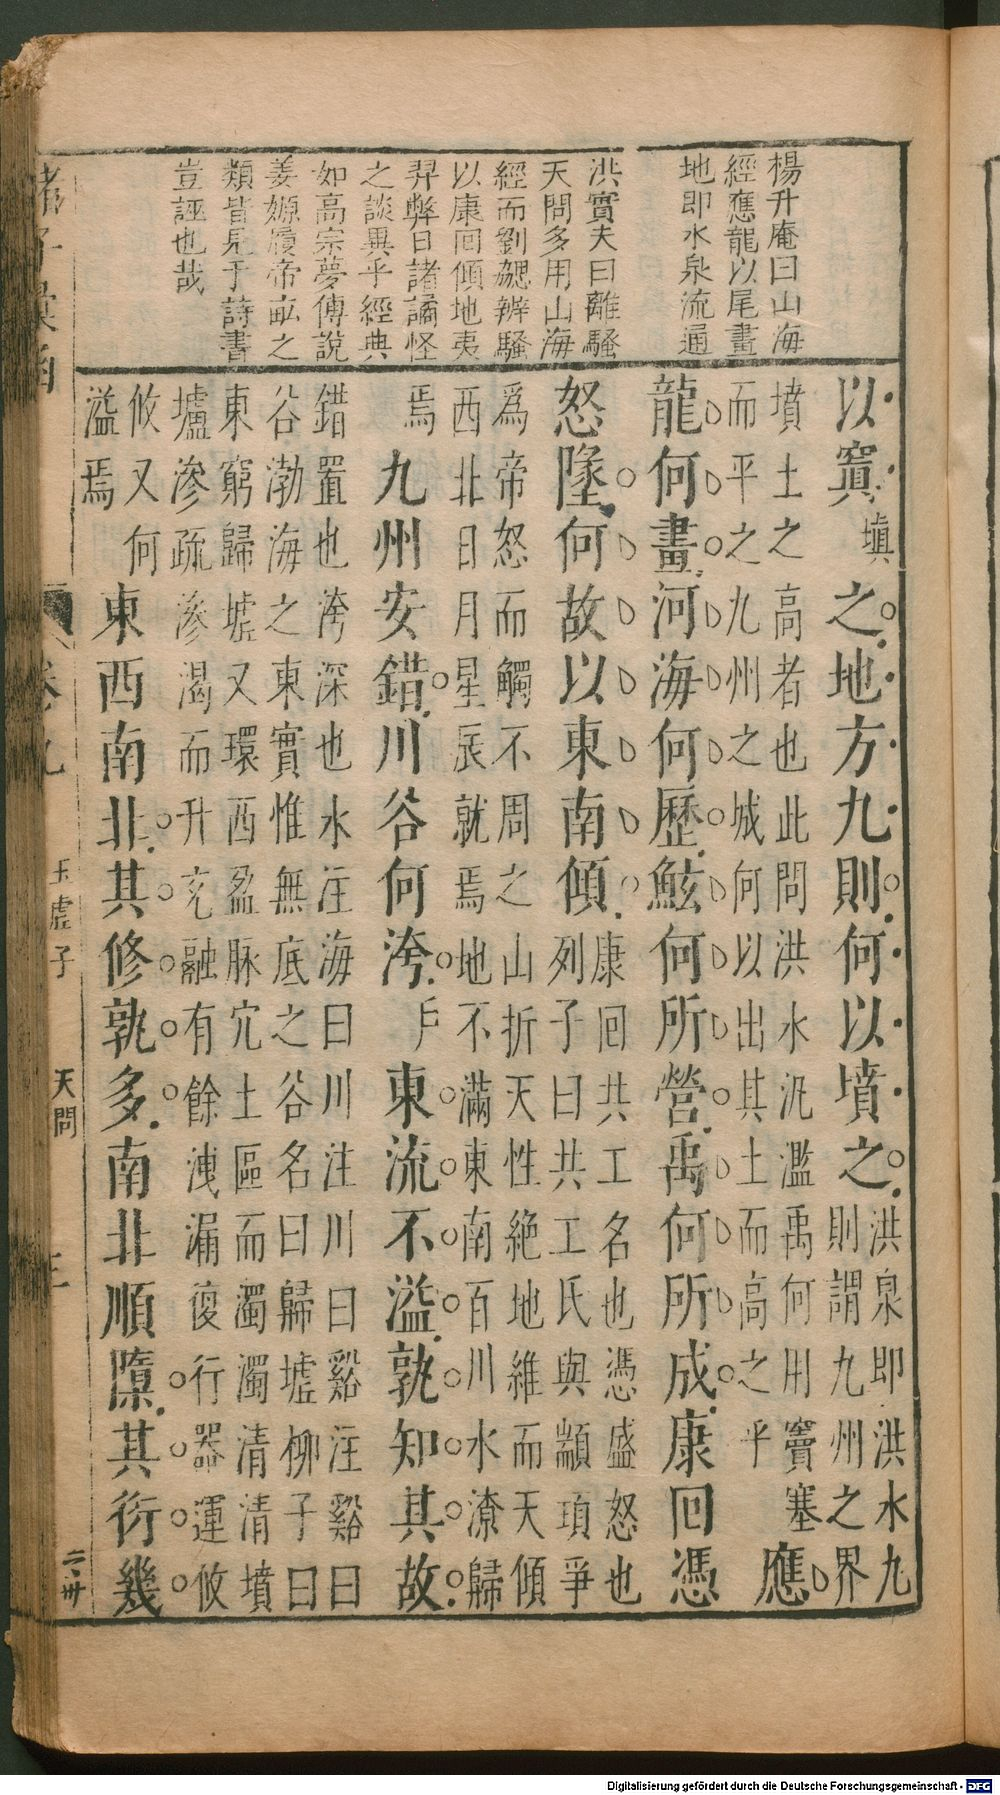 楊升庵曰山海
經應龍以尾畫
地即水泉流通
洪實夫曰離騷
天問多用山海
經而劉勰辨騷
以康回傾地夷
羿弊日諸譎怪
之談異乎經典
如高宗夢傅說
姜嫄履帝畝之
類皆見于詩書
豈誣也哉
以窴填之地方九則何以墳之洪泉即洪水九
則謂九州之界
墳土之高者也此問洪水汎濫禹何用窴塞
而平之九州之城何以出其土而高之乎
應
龍何畫河海何歷鮌何所營禹何所成康回憑
怒墬何故以東南傾康回共工名也憑盛怒也
列子曰共工氏與顓頊爭
爲帝怒而觸不周之山折天性絶地維而天傾
西北日月星辰就焉地不滿東南百川水潦歸
焉九州安錯川谷何洿戶東流不溢孰知其故
錯置也洿深也水注海曰川注川曰谿注谿曰
谷渤海之東實惟無底之谷名曰歸墟柳子曰
東窮歸墟又環西盈脉穴土區而濁濁清清墳
壚滲疏滲渴而升充融有餘洩漏復行器運攸
攸又何
溢焉
東西南北其修孰多南北順隳其衍幾
諸子彙函
卷九
玉虛子
天問
三
二卅
Digitalisierung gefördert durch die Deutsche Forschungsgemeinschaft - DFG